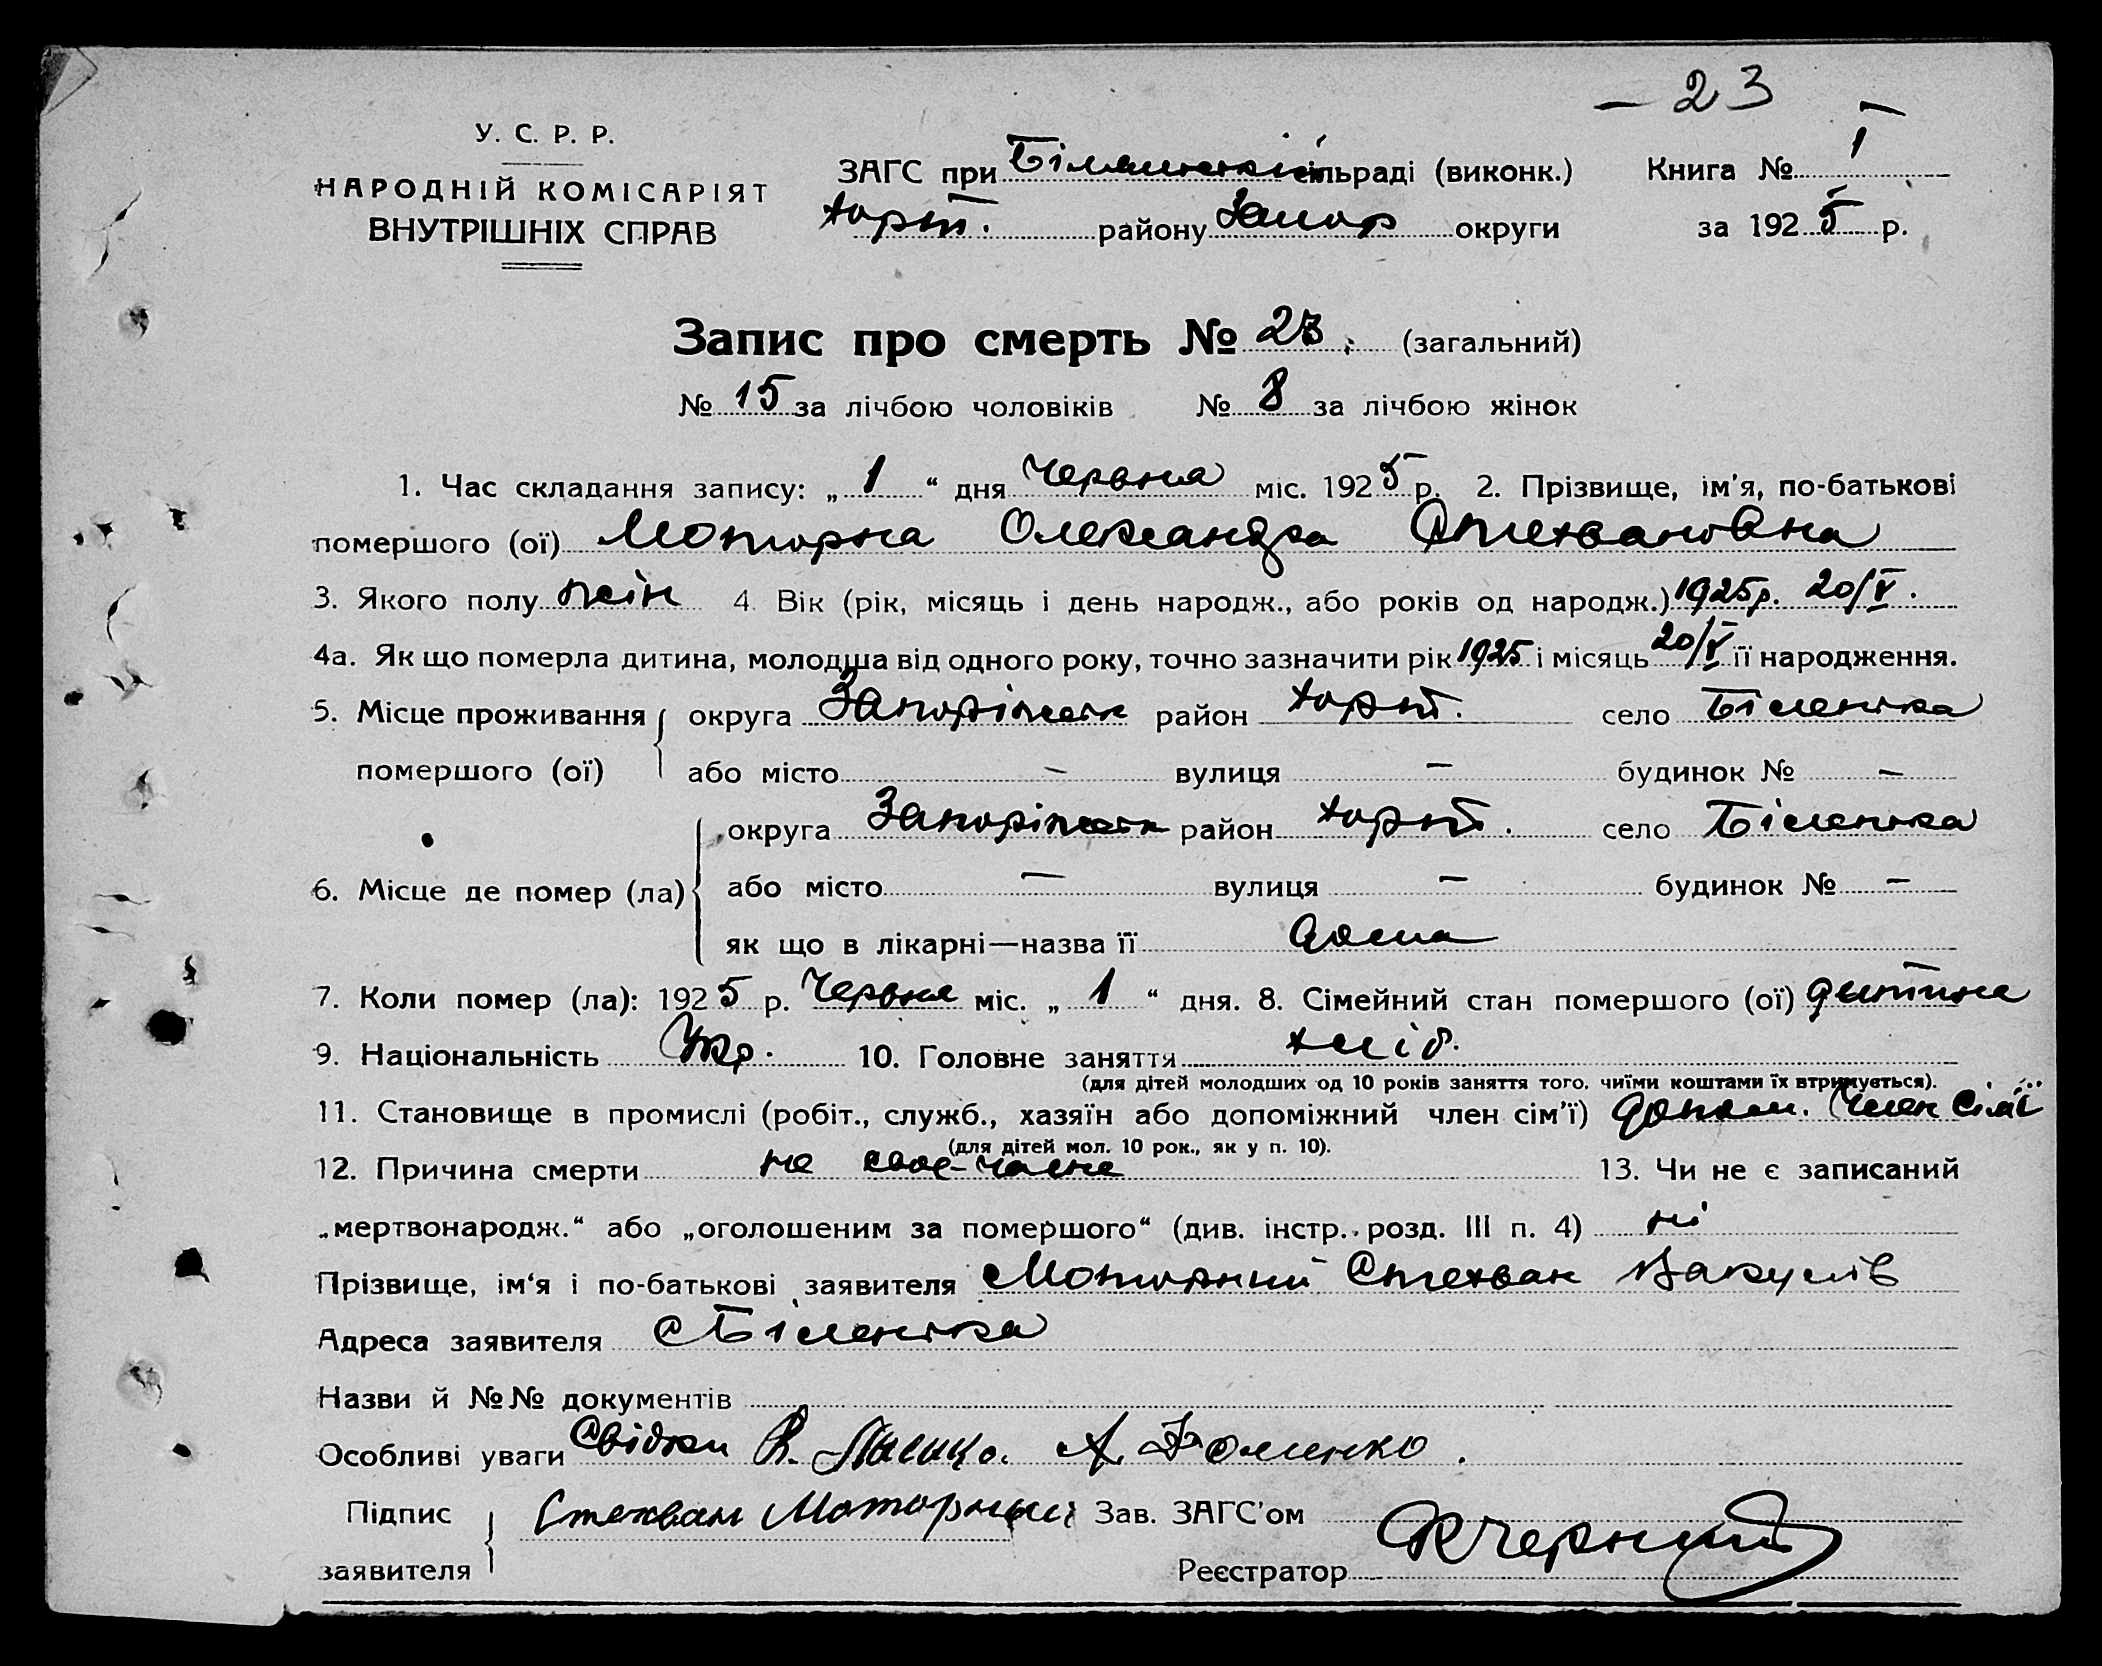 – 23
У. С. Р. Р.
НАРОДНІЙ КОМІСАРІЯТ
ВНУТРІШНІХ СПРАВ
ЗАГС при Біленській сільраді (виконк.) Книга № 1
Хорт. району Запор округи за 1925 р.
Запис про смерть № 23. (загальний)
№ 15 за лічбою чоловіків № 8 за лічбою жінок
1. Час складання запису: „ 1 “ дня Червня міс. 1925 р. 2. Прізвище, ім'я, по-батькові
помершого (ої) Моторна Олександра Стехвановна
3. Якого полу жін 4. Вік (рік, місяць і день народж., або років од народж.) 1925р. 20/V.
4а. Як що померла дитина, молодша від одного року, точно зазначити рік 1925 і місяць 20/V її народження.
5. Місце проживання округа Запоріжськ район Хорт. село Біленька
помершого (ої) або місто – вулиця – будинок № –
округа Запоріжськ район Хорт. село Біленька
6. Місце де помер (ла) або місто – вулиця – будинок № –
як що в лікарні—назва її дома
7. Коли помер (ла): 1925 р. Червня міс. „ 1 “ дня. 8. Сімейний стан помершого (ої) дитина
9. Національність Укр. 10. Головне заняття хліб.
(для дітей молодших од 10 років заняття того, чиїми коштами їх втримується).
11. Становище в промислі (робіт., служб., хазяїн або допоміжний член сім'ї) допом. Член сім'ї
(для дітей мол. 10 рок., як у п. 10).
12. Причина смерти не своє-часне 13. Чи не є записаний
„мертвонародж.“ або „оголошеним за помершого“ (див. інстр. розд. III п. 4) ні
Прізвище, ім'я і по-батькові заявителя Моторний Стехван Вакулів
Адреса заявителя с Біленька
Назви й №№ документів
Особливі уваги Свідки А. Фоменко.
Підпис Стехван Моторный Зав. ЗАГС'ом
заявителя Реєстратор КЧерний